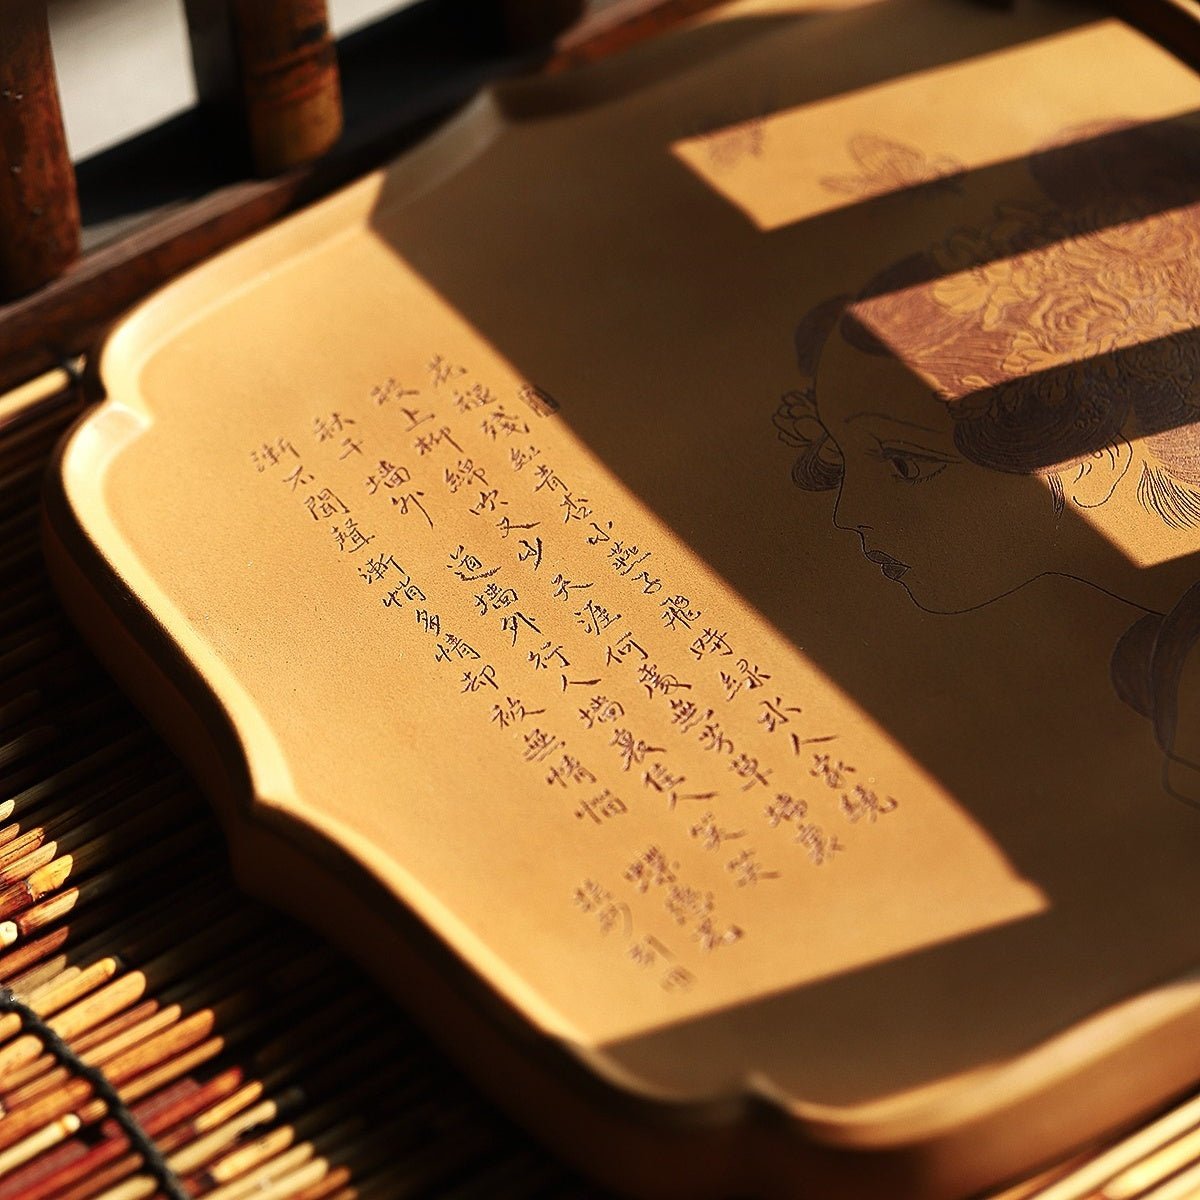 花褪殘红青杏小燕子飛時綠水人家繞
枝上柳綿吹又少天涯何處無芳草墙裏
秋千墙外道墙外行人墙裏佳人笑笑
漸不聞聲漸悄多情却被無情惱
蝶戀花